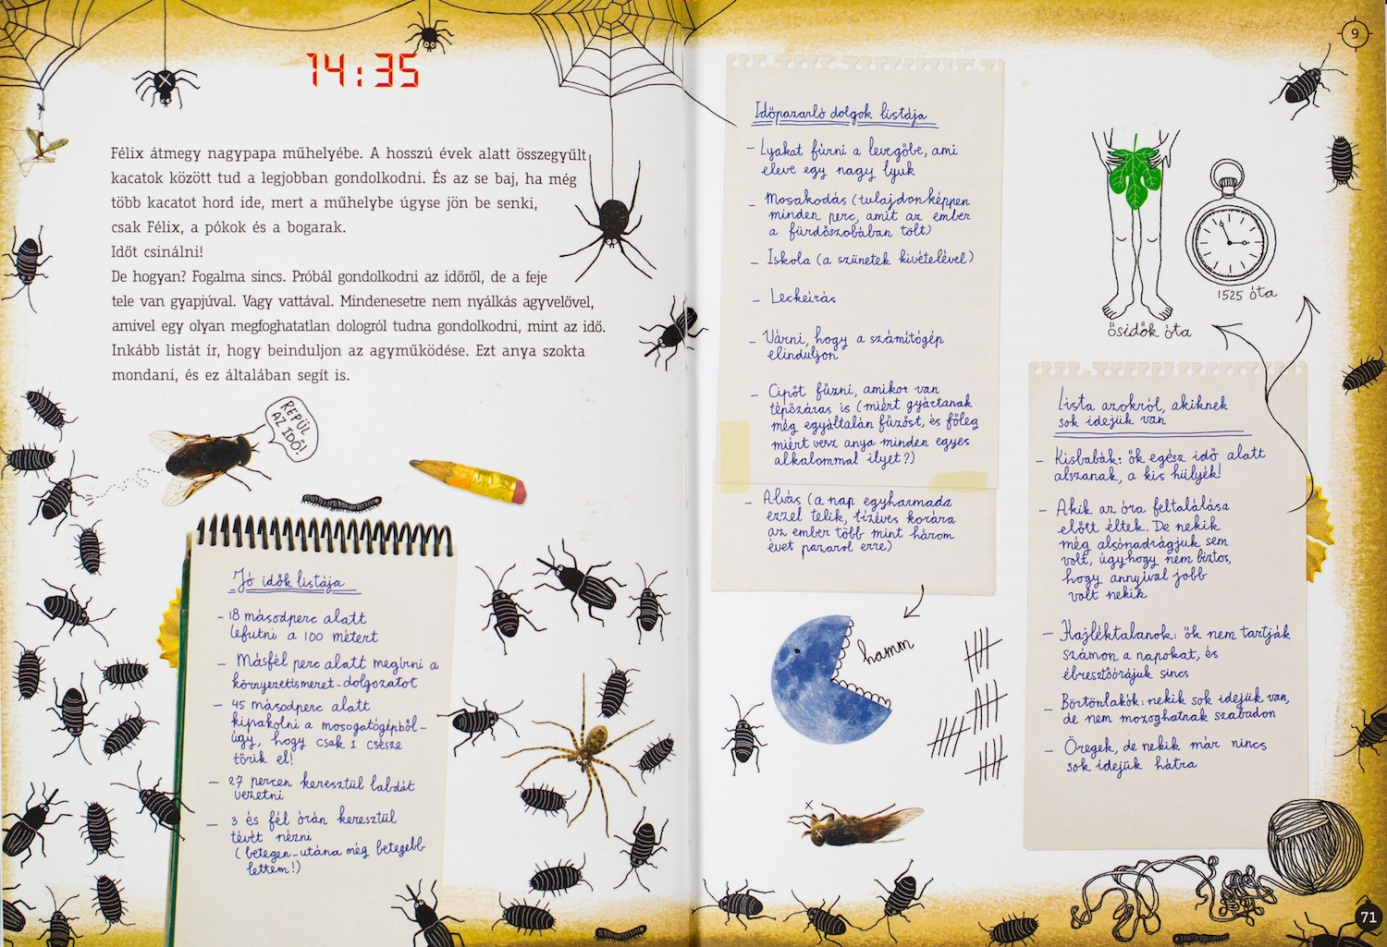 14:35
Félix átmegy nagypapa műhelyébe. A hosszú évek alatt összegyűlt
kacatok között tud a legjobban gondolkodni. És az se baj, ha még
több kacatot hord ide, mert a műhelybe úgyse jön be senki,
csak Félix, a pókok és a bogarak.
Időt csinálni!
De hogyan? Fogalma sincs. Próbál gondolkodni az időről, de a feje
tele van gyapjúval. Vagy vattával. Mindenesetre nem nyálkás agyvelővel,
amivel egy olyan megfoghatatlan dologról tudna gondolkodni, mint az idő.
Inkább listát ír, hogy beinduljon az agyműködése. Ezt anya szokta
mondani, és ez általában segít is.
REPÜL
AZ IDŐ!
Jó idők listája
- 18 másodperc alatt
lefutni a 100 métert
- Másfél perc alatt megírni a
környezetismeret-dolgozatot
- 45 másodperc alatt
kipakolni a mosogatógépből-
úgy, hogy csak 1 csésze
törik el!
- 27 percen keresztül labdát
vezetni
- 3 és fél órán keresztül
tévét nézni
(betegen-utána még betegebb
lettem!)
Időpazarló dolgok listája
- Lyukat fúrni a levegőbe, ami
eleve egy nagy lyuk
- Mosakodás (tulajdonképpen
minden perc, amit az ember
a fürdőszobában tölt)
- Iskola (a szünetek kivételével)
- Leckeírás
- Várni, hogy a számítógép
elinduljon
- Cipőt fűzni, amikor van
tépőzáras is (miért gyártanak
még egyáltalán fűzőst, és főleg
miért vesz anya minden egyes
alkalommal ilyet?)
- Alvás (a nap egyharmada
ezzel telik, tízéves korára
az ember több mint három
évet pazarol erre)
hamm
9
1525 óta
ősidők óta
Lista azokról, akiknek
sok idejük van
- Kisbabák: ők egész idő alatt
alszanak, a kis hülyék!
- Akik az óra feltalálása
előtt éltek. De nekik
még alsónadrágjuk sem
volt, úgyhogy nem biztos,
hogy annyival jobb
volt nekik
- Hajléktalanok: ők nem tartják
számon a napokat, és
ébresztőórájuk sincs
- Börtönlakók: nekik sok idejük van,
de nem mozoghatnak szabadon
- Öregek, de nekik már nincs
sok idejük hátra
71